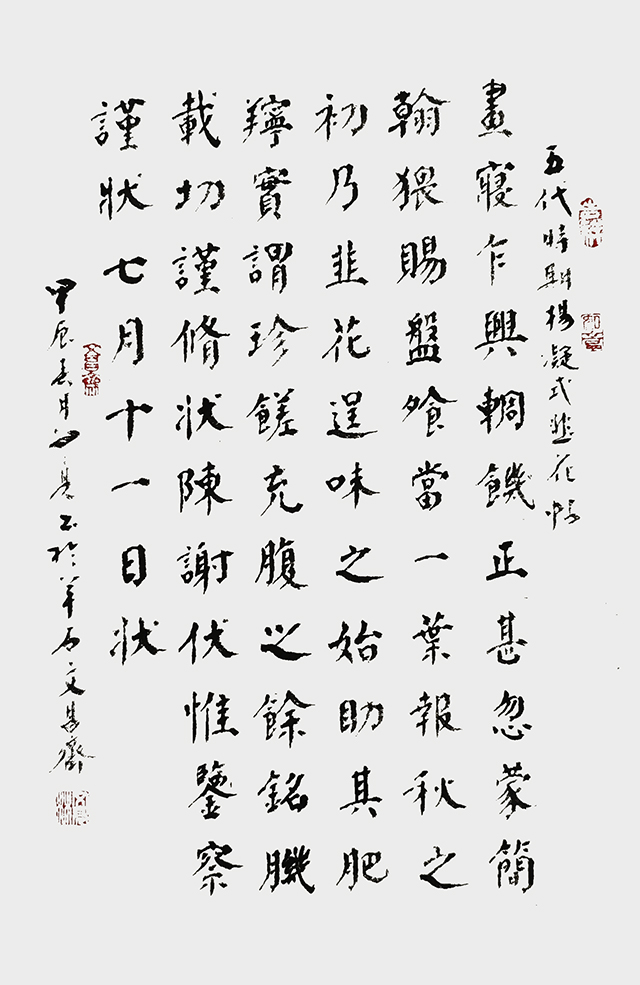 五代時期楊凝式韭花帖
晝寢乍興輖饑正甚忽蒙簡
翰猥賜盤飧當一葉報秋之
初乃韭花逞味之始助其肥
羜實謂珍饈充腹之餘銘肌
載切謹脩狀陳謝伏惟鑒察
謹狀七月十一日狀
甲辰春月書於羊石文昌齋